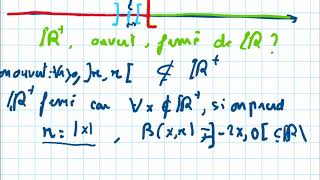 ℝ⁺, ouvert, fermé de ℝ ?
non ouvert: ∀r>0, ]-r, r[ ⊄ ℝ⁺
ℝ⁺ fermé car ∀x∉ℝ⁺, si on prend
r = |x| , B(x,r) = ]-2x, 0[ ⊆ ℝ\